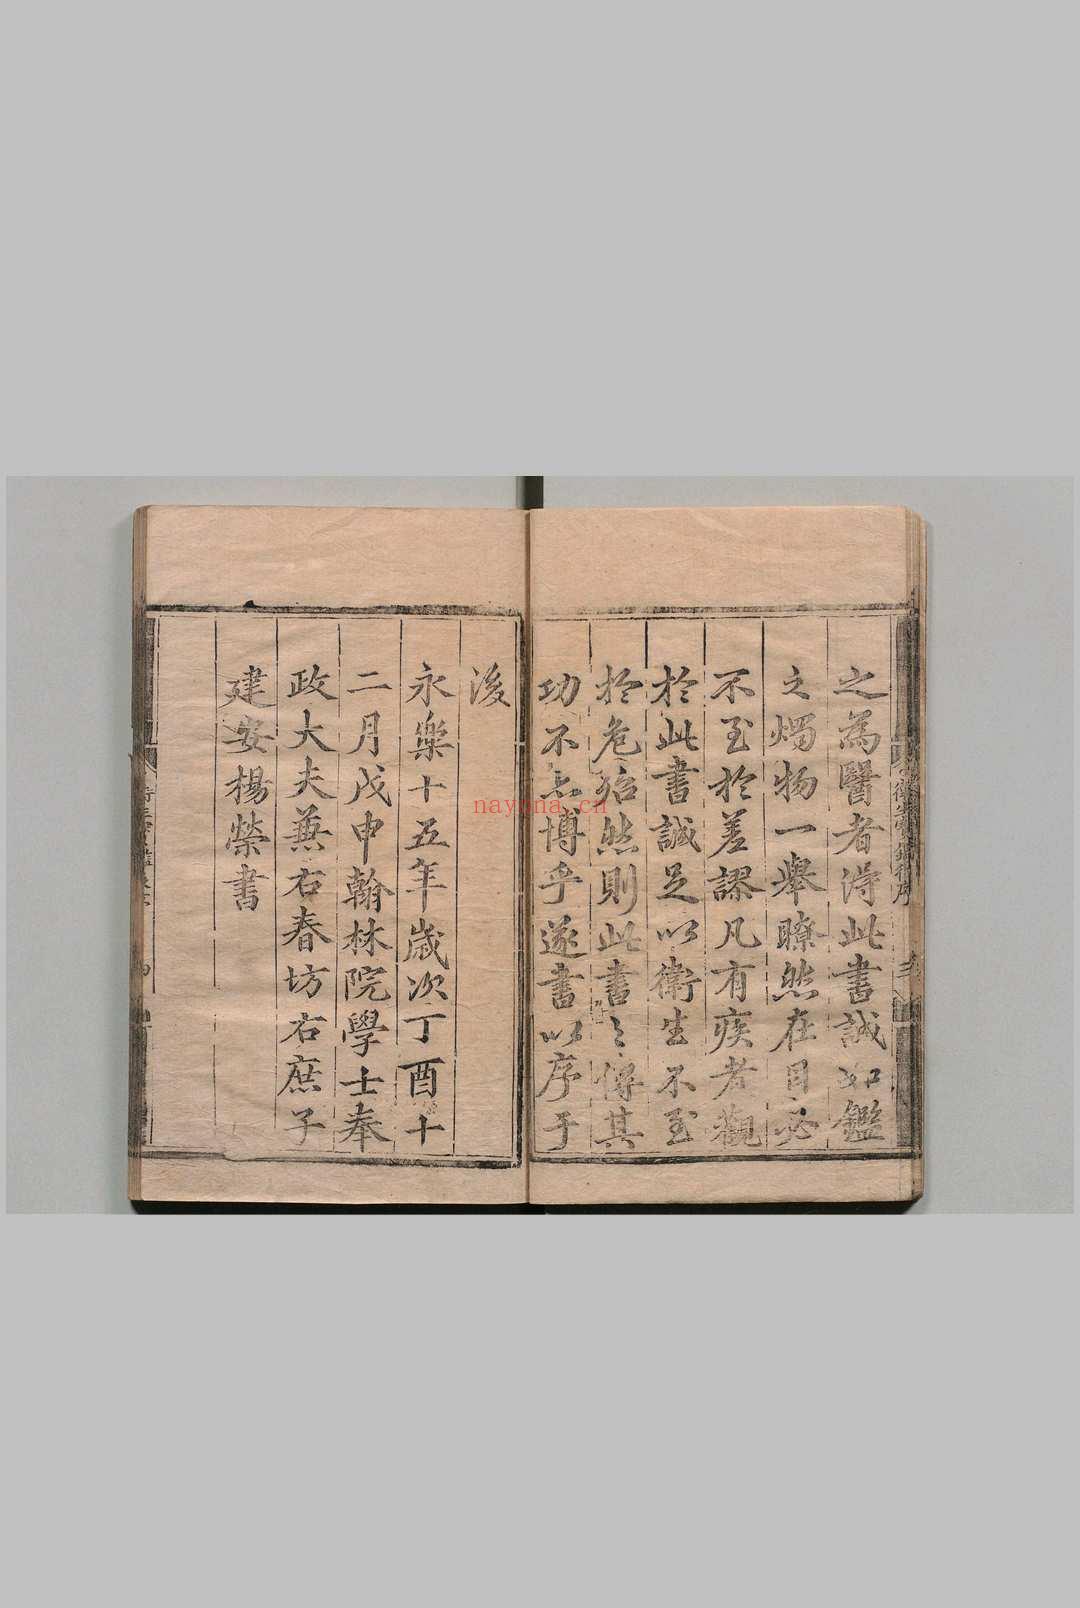 之為醫者得此書誠如鑑
之燭物一舉瞭然在目必
不至於差謬凡有疾者觀
於此書誠足以衛生不至
於危殆然則此書之傳其
功不亦博乎遂書以序于
後
永樂十五年歲次丁酉十
二月戊申翰林院學士奉
政大夫兼右春坊右庶子
建安楊榮書
nayona.cn